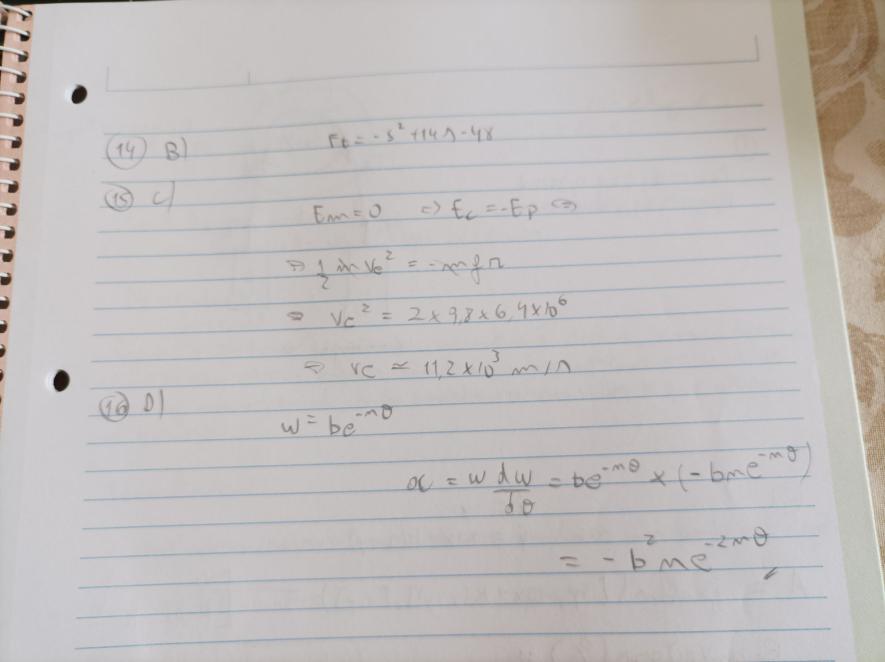 14 B) Ft = -s² + 14s - 48
15 C)
Em = 0 ⇒ Ec = -Ep ⇔
⇒ 1/2 m Vc² = -mgr
⇒ Vc² = 2 × 9,8 × 6,4 × 10⁶
⇒ vc ≃ 11,2 × 10³ m/s
16 D)
w = be^(-mθ)
α = w dw/dθ = be^(-mθ) × (-bme^(-mθ))
= -b²me^(-2mθ)